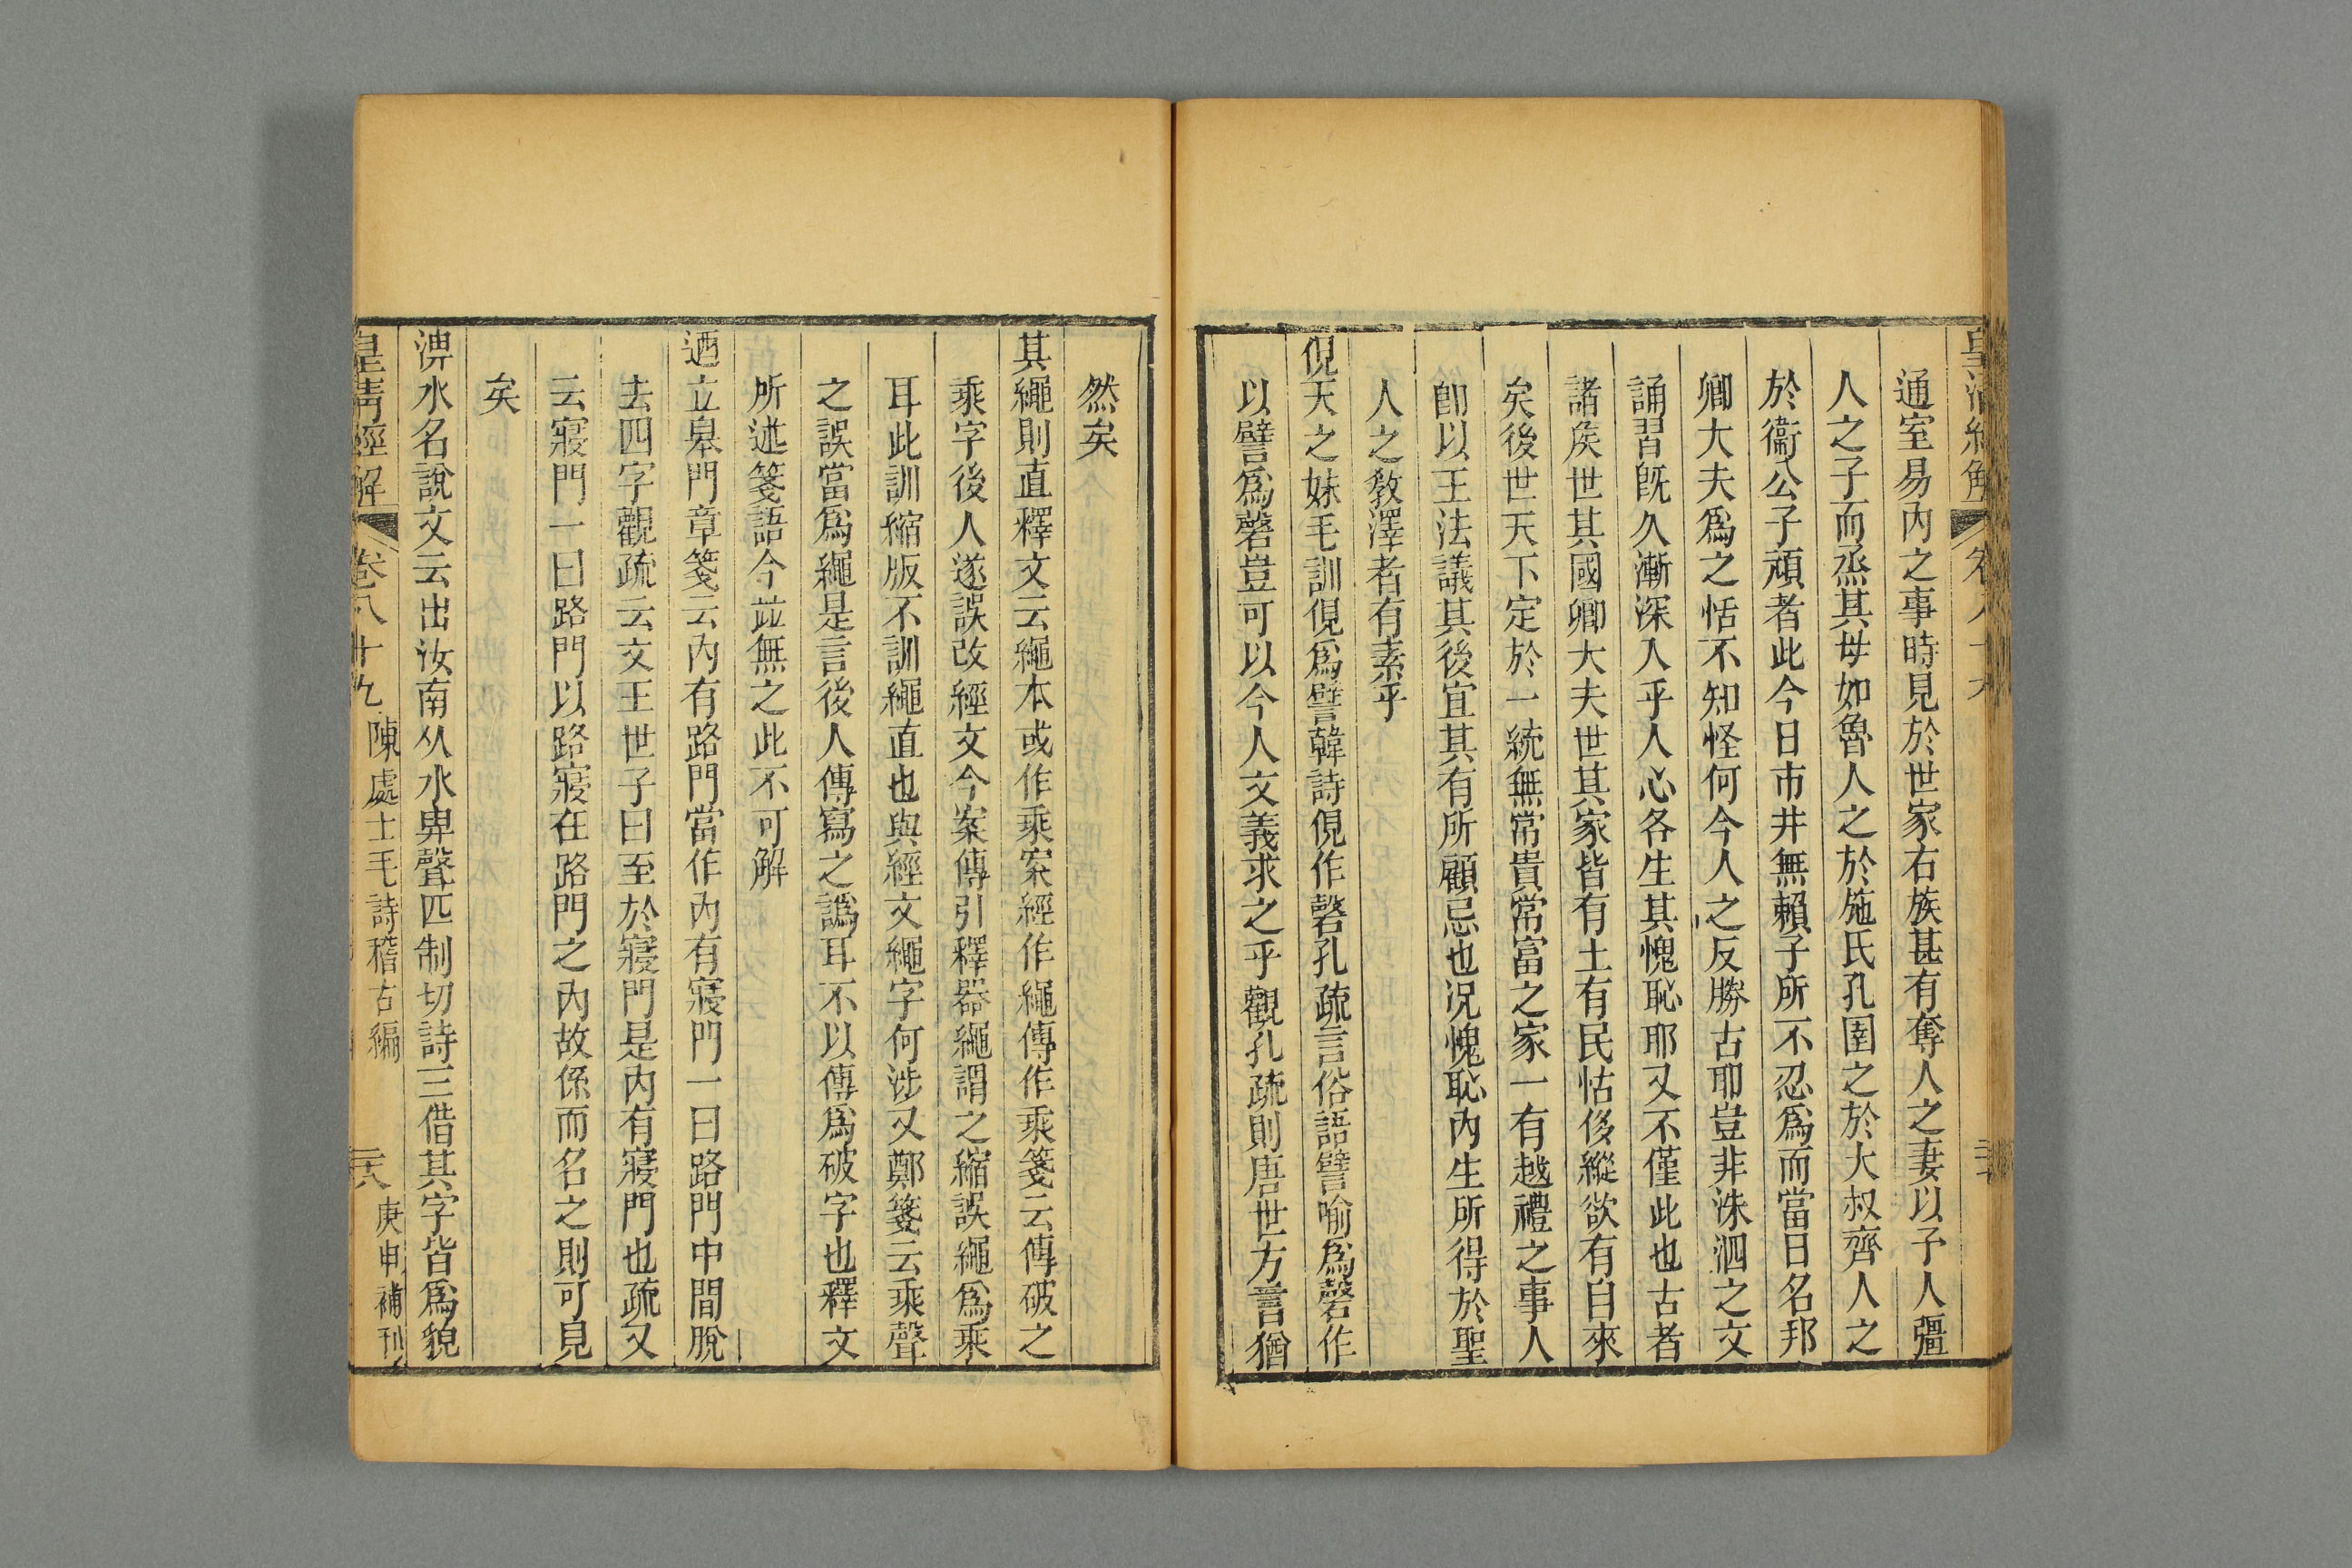 皇清經解
卷八十九
通室易內之事時見於世家右族甚有奪人之妻以予人彊
人之子而烝其母如魯人之於施氏孔圉之於大叔齊人之
於衞公子頑者此今日市井無賴子所不忍爲而當日名邦
卿大夫爲之恬不知怪何今人之反勝古耶豈非洙泗之文
誦習旣久漸深入乎人心各生其愧恥耶又不僅此也古者
諸矦世其國卿大夫世其家皆有土有民怙侈縱欲有自來
矣後世天下定於一統無常貴常富之家一有越禮之事人
卽以王法議其後宜其有所顧忌也况愧恥內生所得於聖
人之敎澤者有素乎
俔天之妹毛訓俔爲譬韓詩俔作磬孔疏言俗語譬喻爲磬作
以譬爲磬豈可以今人文義求之乎觀孔疏則唐世方言猶
然矣
其繩則直釋文云繩本或作乘案經作繩傳作乘箋云傳破之
乘字後人遂誤改經文今案傳引釋器繩謂之縮誤繩爲乘
耳此訓縮版不訓繩直也與經文繩字何涉又鄭箋云乘聲
之誤當爲繩是言後人傳寫之譌耳不以傳爲破字也釋文
所述箋語今並無之此不可解
迺立臯門章箋云內有路門當作內有寢門一曰路門中間脫
去四字觀疏云文王世子曰至於寢門是內有寢門也疏又
云寢門一曰路門以路寢在路門之內故係而名之則可見
矣
淠水名說文云出汝南从水畀聲匹制切詩三借其字皆爲貌
皇清經解
卷八十九
陳處士毛詩稽古編
庚申補刊